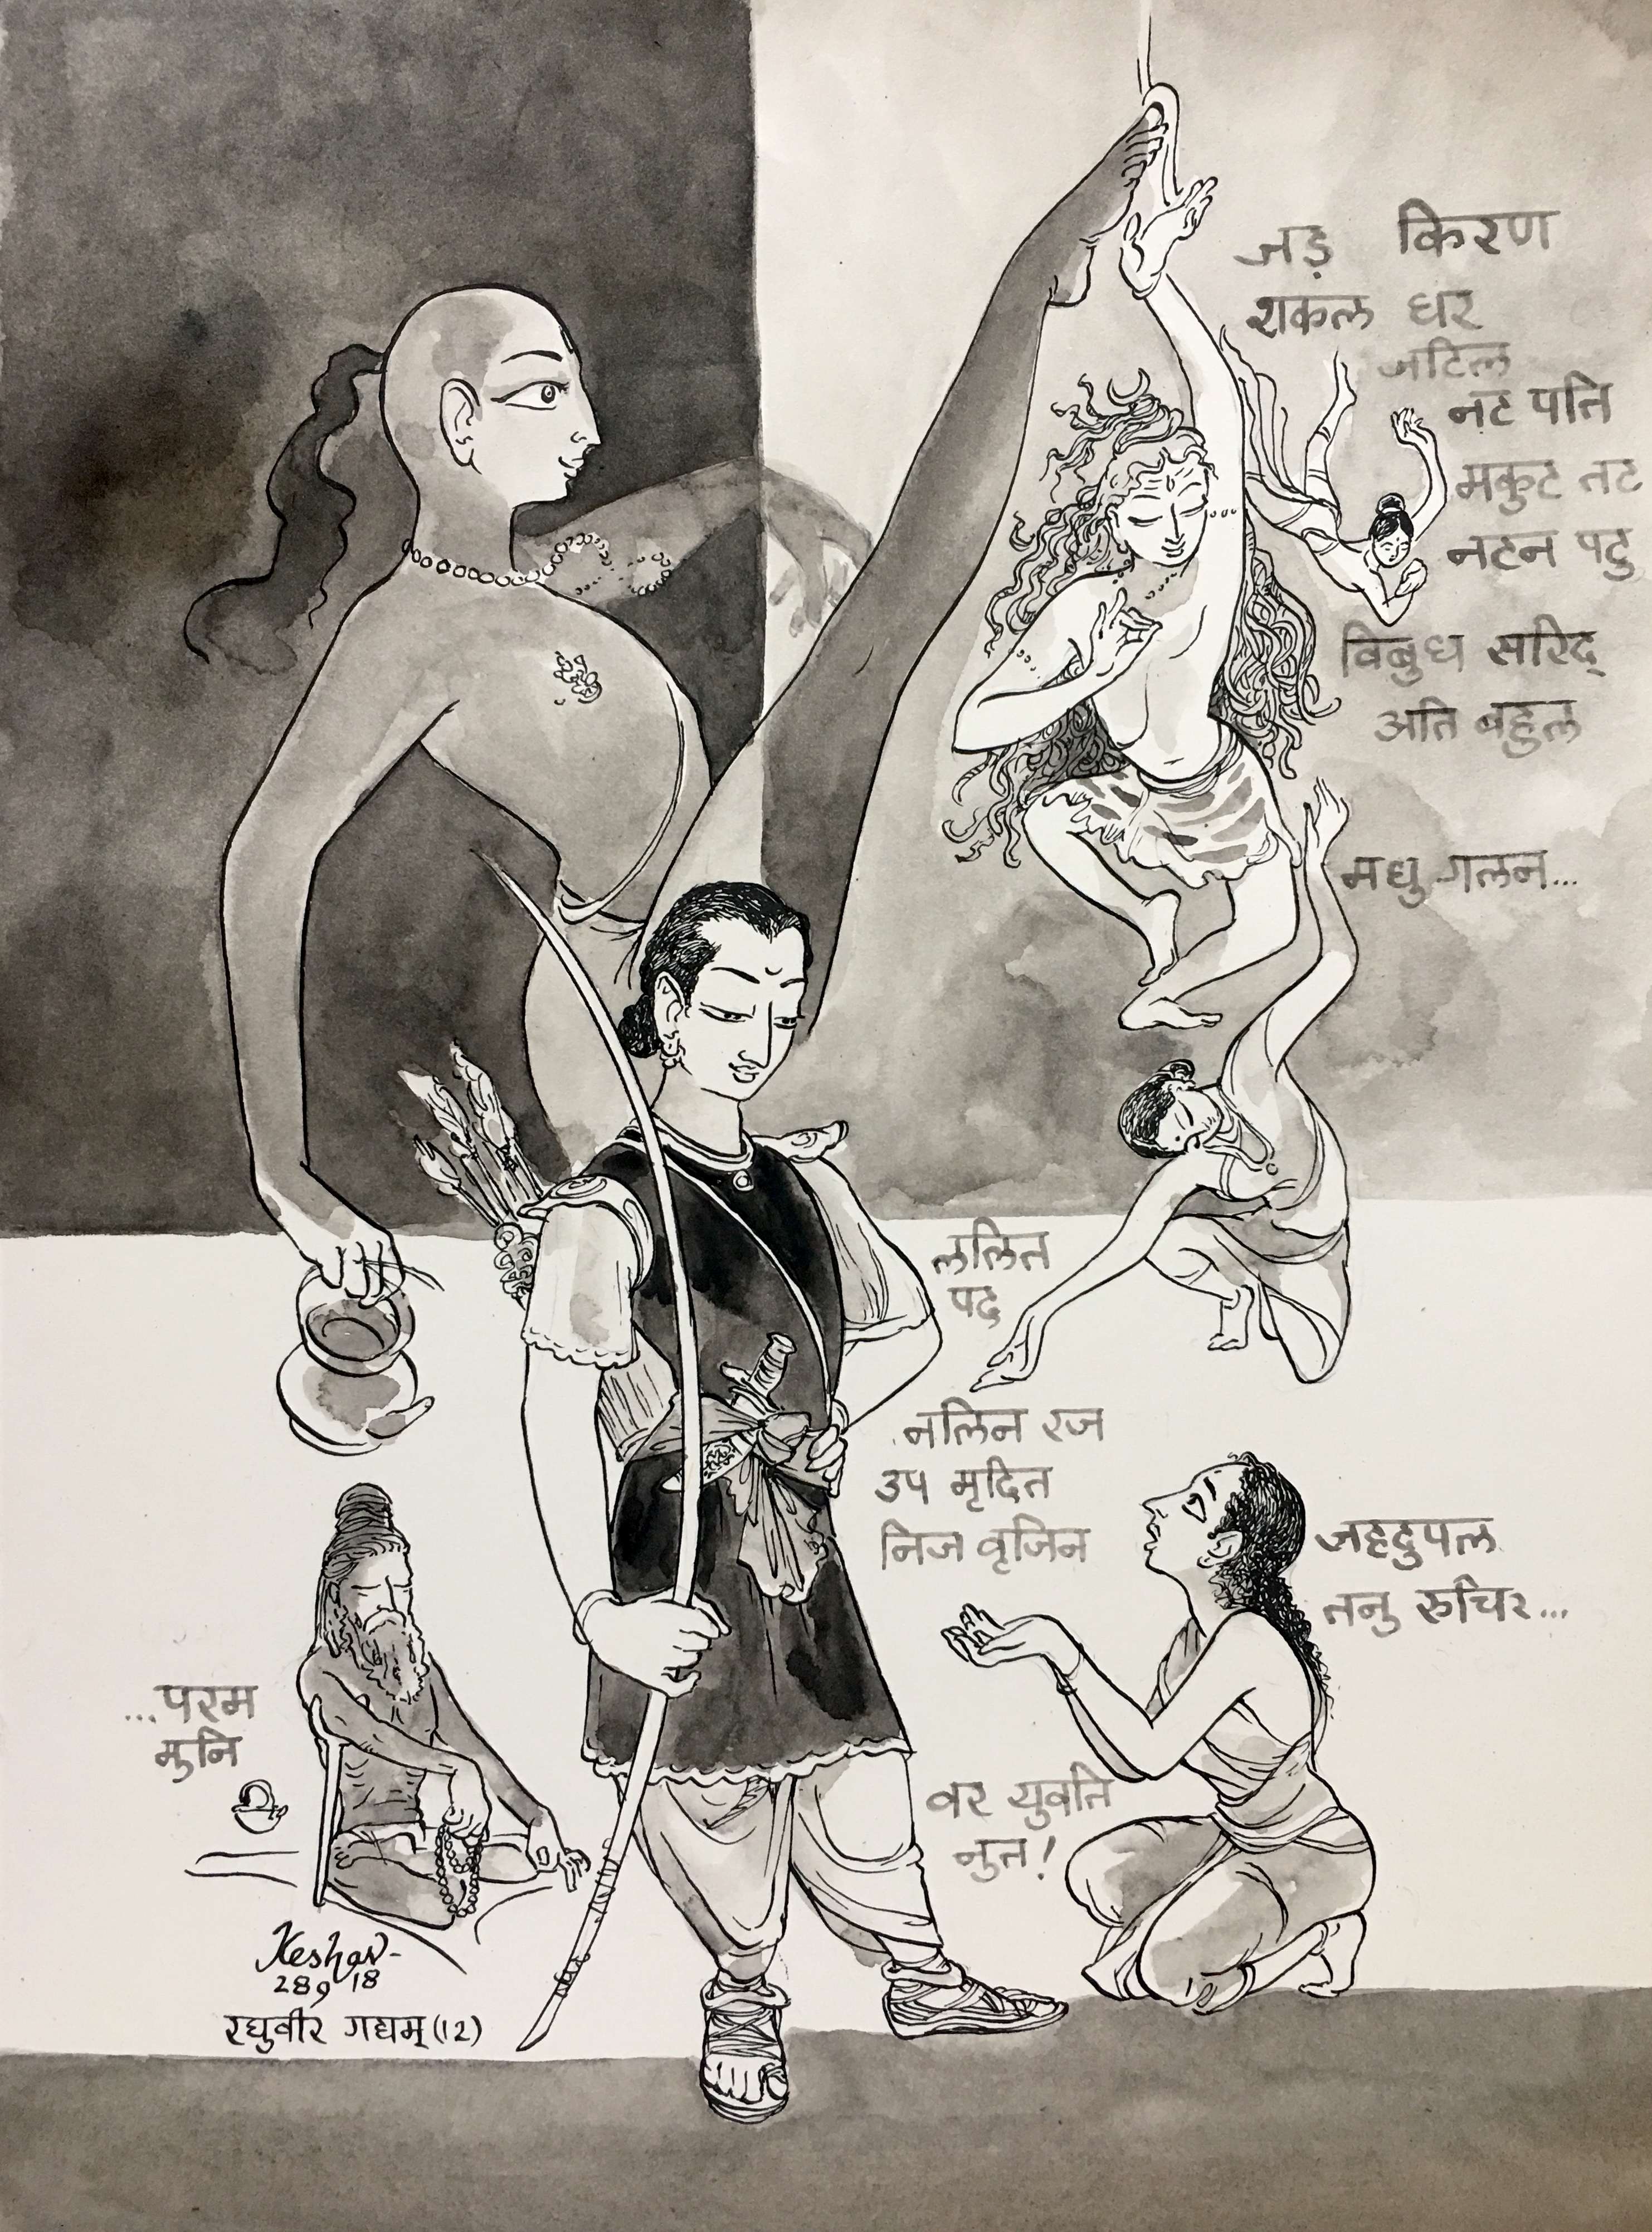 जड़ किरण
शकल धर
जटिल
नट पति
मकुट तट
नटन पटु
विबुध सरिद्
अति बहुल
मधु गलन...
ललित
पद
नलिन रज
उप मृदित
निज वृजिन
जहदुपल
तनु रुचिर...
...परम
मुनि
वर युवति
नुत!
Keshav
28 9 18
रघुवीर गद्यम् (12)